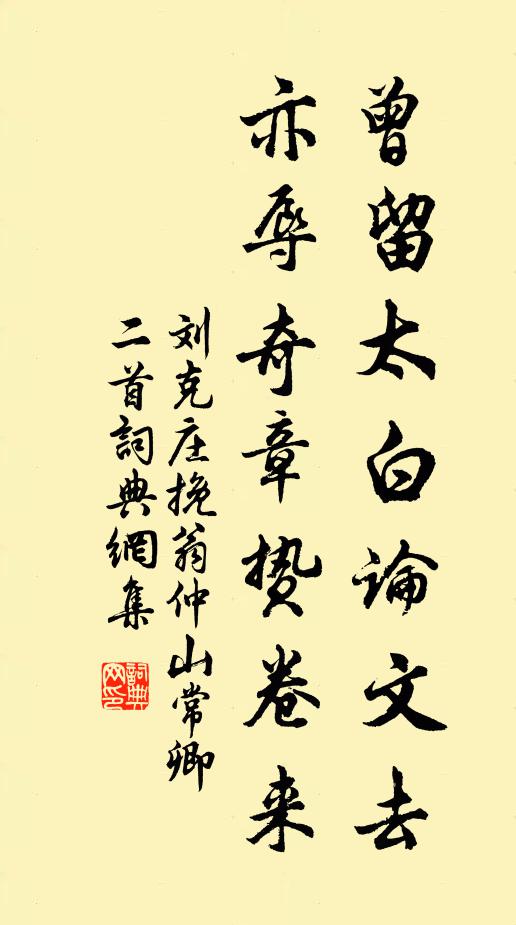 曾留太白論文去
亦辱奇章贽卷来
刘克庄挽翁仲山常卿
二首詞典網集
詞典
网印